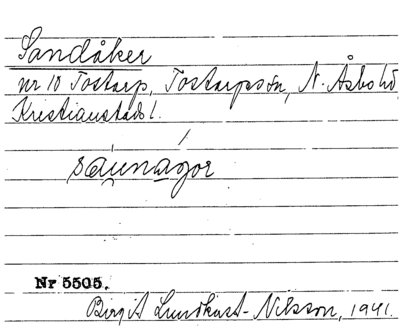 Sandåker
nr 10 Tostarp, Tostarpsön, N. Åsbo hd
Kristianstads l.
Nr 5505.
Birgit Lundkvist-Nilsson, 1941.